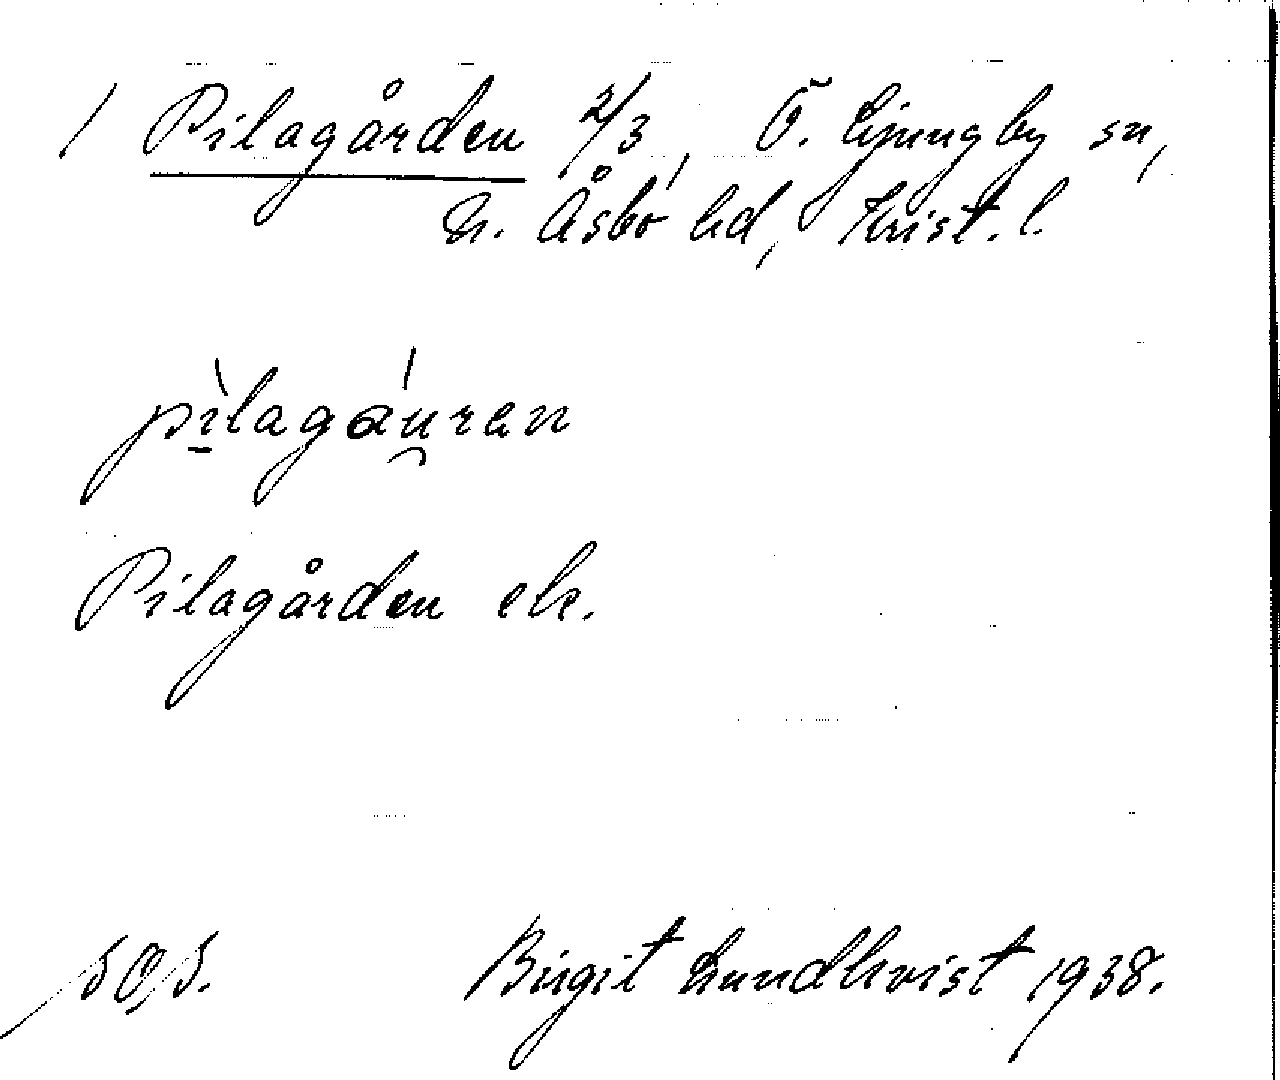 1 Pilagården 2/3, Ö. Ljungby sn,
N. Åsbo hd, Krist. l.
pìlagáuren
Pilagården ek.
Birgit Lundkvist 1938.